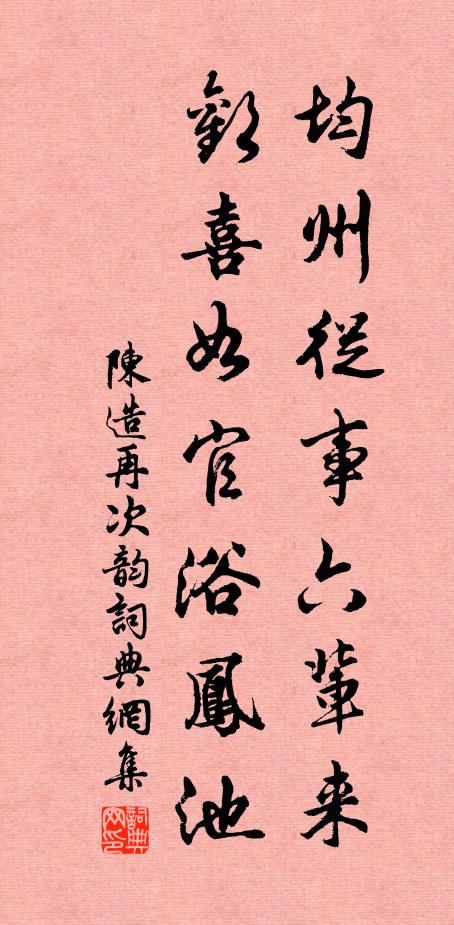 均州從事六輩来
歡喜如官浴鳳池
陳造再次韵詞典網集
詞典网印